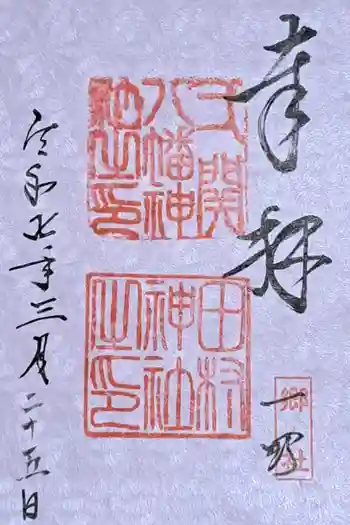 奉拝
郷社
一野
久留
八幡神
社之印
田村
神社
之印
令和七年三月二十五日